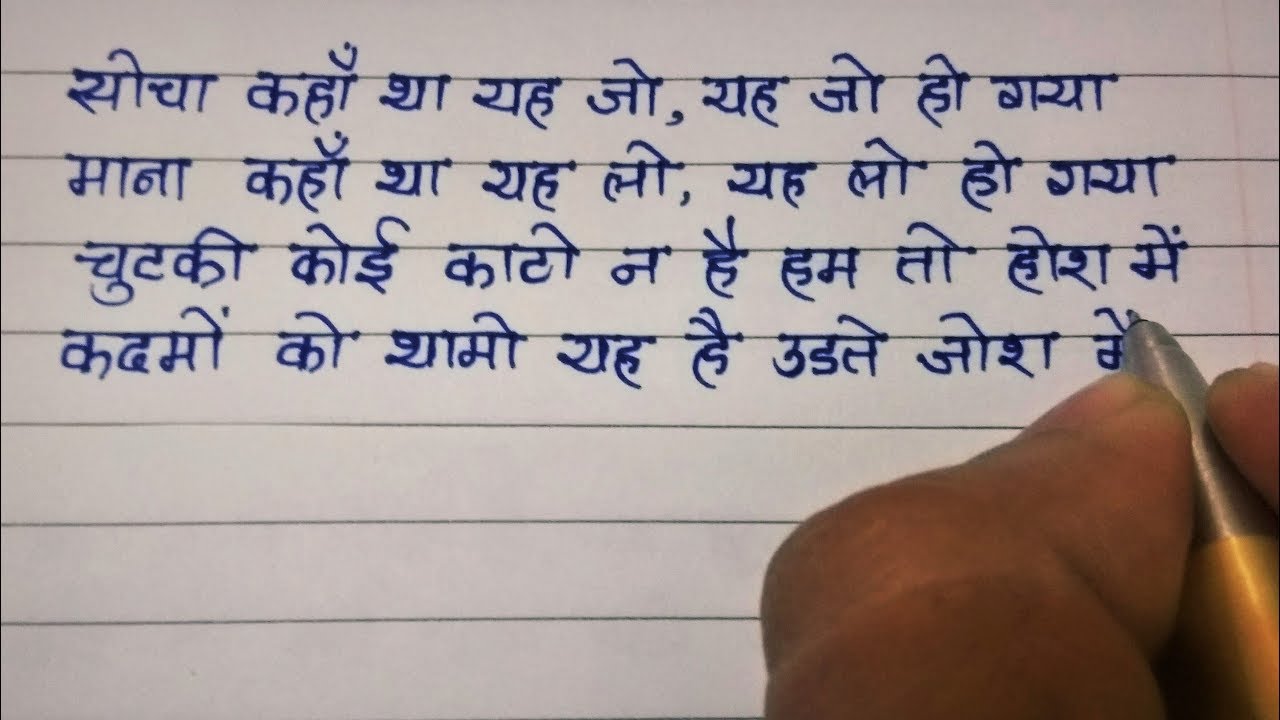 सोचा कहाँ था यह जो, यह जो हो गया
माना कहाँ था यह लो, यह लो हो गया
चुटकी कोई काटो न है हम तो होश में
कदमों को थामो यह है उडते जोश में